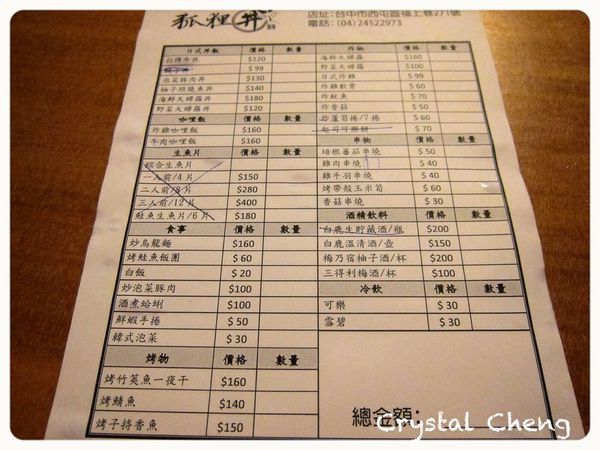 狐狸丼
店址:台中市西屯區福上巷271號
電話:(04)24522973
日式丼飯 價格 數量
招牌牛丼 $120
$99
泡菜豚肉丼 $130
柚子照燒魚丼 $140
海鮮天婦羅丼 $180
野菜天婦羅丼 $120
咖哩飯 價格 數量
炸雞咖哩飯 $160
牛肉咖哩飯 $160
生魚片 價格 數量
綜合生魚片
一人前/4片 $150
二人前/8片 $280
三人前/12片 $400
鮭魚生魚片/6片 $180
食事 價格 數量
炒烏龍麵 $160
烤鮭魚飯團 $60
白飯 $20
炒泡菜豚肉 $100
酒煮蛤蜊 $100
鮮蝦手捲 $50
韓式泡菜 $30
烤物 價格 數量
烤竹筴魚一夜干 $160
烤鯖魚 $140
烤子持香魚 $150
炸物 價格 數量
海鮮天婦羅 $160
野菜天婦羅 $100
日式炸雞 $99
炸雞軟骨 $60
炸魷魚 $70
炸香菇 $50
蘆筍捲/7捲 $60
起司可樂餅 $70
串物 價格 數量
培根番茄串燒 $50
雞肉串燒 $40
雞手羽串燒 $50
烤帶殼玉米筍 $60
香菇串燒 $50
酒精飲料 價格 數量
白鹿生貯藏酒/瓶 $200
白鹿溫清酒/壺 $150
梅乃宿柚子酒/杯 $200
三得利梅酒/杯 $100
冷飲 價格 數量
可樂 $30
雪碧 $30
總金額:
Crystal Cheng